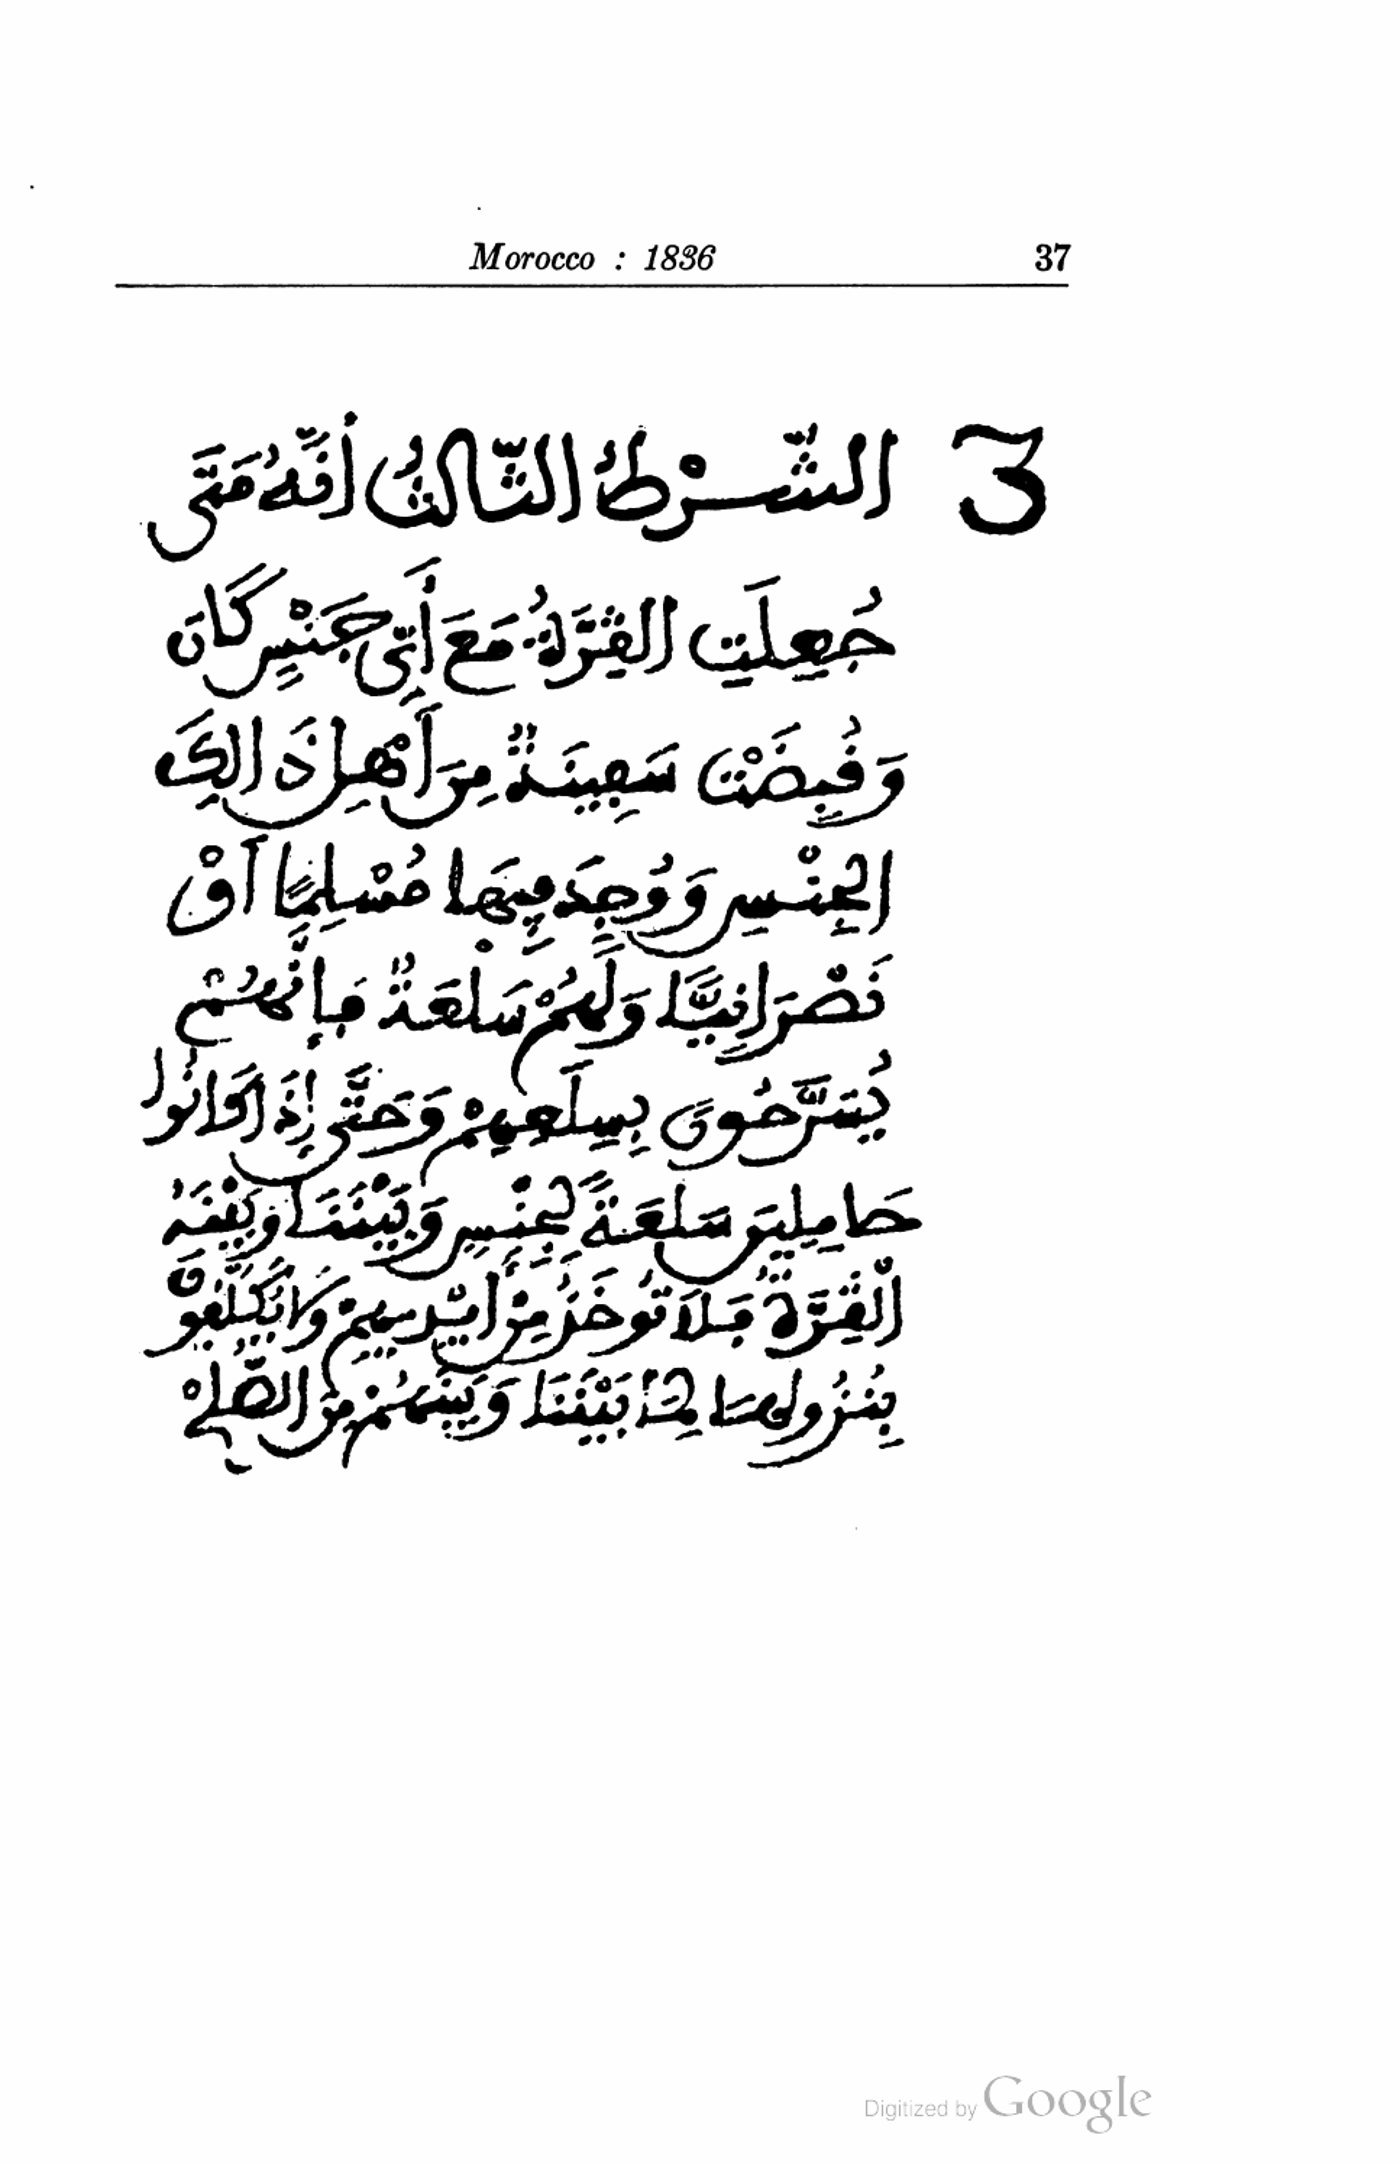 Morocco : 1836 37
3 الشَّرْطُ الثَّالِثُ أَنَّهُ مَتَى
جُعِلَتِ الفِتْرَةُ مَعَ أَيِّ جَنْسٍ كَانَ
وَقُبِضَتْ سَفِينَةٌ مِنَ أَهْلِ ذَالِكَ
الجِنْسِ وَوُجِدَ فِيهَا مُسْلِمًا أَوْ
نَصْرَانِيًّا وَلَهُمْ سَلْعَةٌ فَإِنَّهُمْ
يُسَرَّحُونَ بِسِلَعِهِمْ وَحَتَّى إِذَا كَانُوا
حَامِلِينَ سَلْعَةً لِجِنْسٍ وَبَيْنَنَا وَبَيْنَهُ
الْفِتْرَةُ فَلَا تُوخَذُ مِنْ أَيْدِيهِمْ وَلَا يُكَلَّفُونَ
بِنُزُولِهَا لِمَا بَيْنَنَا وَبَيْنَهُمْ مِنَ الصُّلْحِ
Digitized by Google